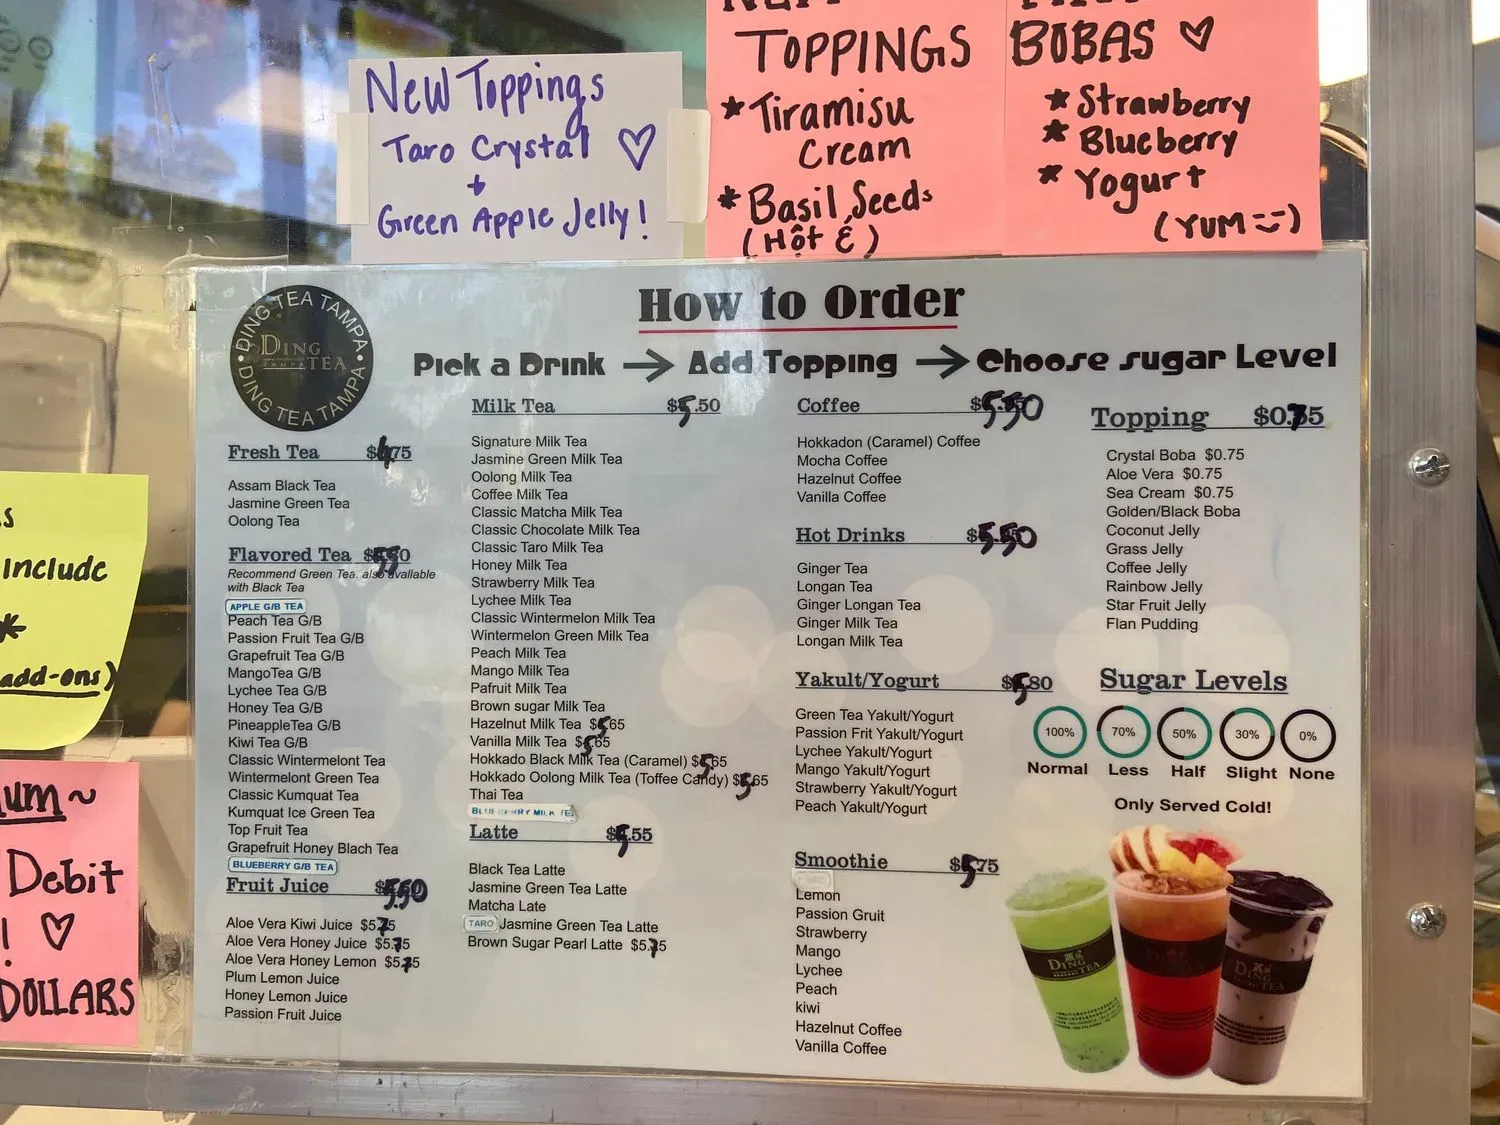 New Toppings
Taro Crystal
+
Green Apple Jelly!
TOPPINGS
* Tiramisu
Cream
* Basil Seeds
BOBAS
* Strawberry
* Blueberry
* Yogurt
(YUM
include
add-ons)
Debit
!
DOLLARS
DING TEA TAMPA • DING TEA TAMPA •
DING
TAMPA TEA
How to Order
Pick a Drink → Add Topping → Choose sugar Level
Fresh Tea $4.75
Assam Black Tea
Jasmine Green Tea
Oolong Tea
Flavored Tea
Recommend Green Tea. also available
with Black Tea
APPLE G/B TEA
Peach Tea G/B
Passion Fruit Tea G/B
Grapefruit Tea G/B
MangoTea G/B
Lychee Tea G/B
Honey Tea G/B
PineappleTea G/B
Kiwi Tea G/B
Classic Wintermelont Tea
Wintermelont Green Tea
Classic Kumquat Tea
Kumquat Ice Green Tea
Top Fruit Tea
Grapefruit Honey Blach Tea
BLUEBERRY G/B TEA
Fruit Juice $5.50
Aloe Vera Kiwi Juice $5.75
Aloe Vera Honey Juice $5.75
Aloe Vera Honey Lemon $5.75
Plum Lemon Juice
Honey Lemon Juice
Passion Fruit Juice
Milk Tea $5.50
Signature Milk Tea
Jasmine Green Milk Tea
Oolong Milk Tea
Coffee Milk Tea
Classic Matcha Milk Tea
Classic Chocolate Milk Tea
Classic Taro Milk Tea
Honey Milk Tea
Strawberry Milk Tea
Lychee Milk Tea
Classic Wintermelon Milk Tea
Wintermelon Green Milk Tea
Peach Milk Tea
Mango Milk Tea
Pafruit Milk Tea
Brown sugar Milk Tea
Hazelnut Milk Tea $5.65
Vanilla Milk Tea $5.65
Hokkado Black Milk Tea (Caramel) $5.65
Hokkado Oolong Milk Tea (Toffee Candy) $5.65
Thai Tea
BLUEBERRY MILK TEA
Latte $5.55
Black Tea Latte
Jasmine Green Tea Latte
Matcha Late
TARO Jasmine Green Tea Latte
Brown Sugar Pearl Latte $5.75
Coffee $5.50
Hokkadon (Caramel) Coffee
Mocha Coffee
Hazelnut Coffee
Vanilla Coffee
Hot Drinks $5.50
Ginger Tea
Longan Tea
Ginger Longan Tea
Ginger Milk Tea
Longan Milk Tea
Yakult/Yogurt $5.80
Green Tea Yakult/Yogurt
Passion Frit Yakult/Yogurt
Lychee Yakult/Yogurt
Mango Yakult/Yogurt
Strawberry Yakult/Yogurt
Peach Yakult/Yogurt
Smoothie $5.75
Lemon
Passion Gruit
Strawberry
Mango
Lychee
Peach
kiwi
Hazelnut Coffee
Vanilla Coffee
Topping $0.75
Crystal Boba $0.75
Aloe Vera $0.75
Sea Cream $0.75
Golden/Black Boba
Coconut Jelly
Grass Jelly
Coffee Jelly
Rainbow Jelly
Star Fruit Jelly
Flan Pudding
Sugar Levels
100% 70% 50% 30% 0%
Normal Less Half Slight None
Only Served Cold!
DING TEA
DING TEA
DING TEA